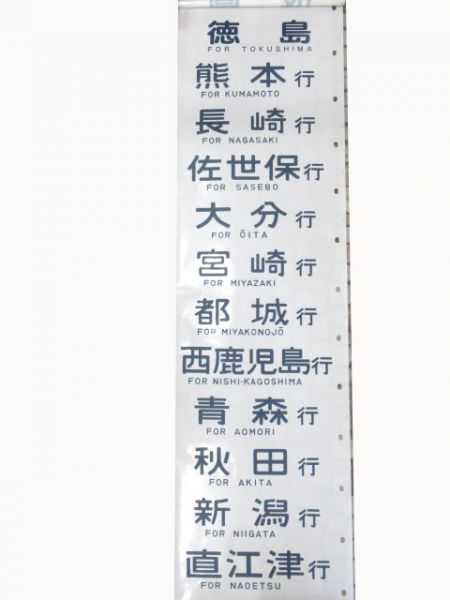 徳島
FOR TOKUSHIMA
熊本行
FOR KUMAMOTO
長崎行
FOR NAGASAKI
佐世保行
FOR SASEBO
大分行
FOR ŌITA
宮崎行
FOR MIYAZAKI
都城行
FOR MIYAKONOJŌ
西鹿児島行
FOR NISHI-KAGOSHIMA
青森行
FOR AOMORI
秋田行
FOR AKITA
新潟行
FOR NIIGATA
直江津行
FOR NAOETSU